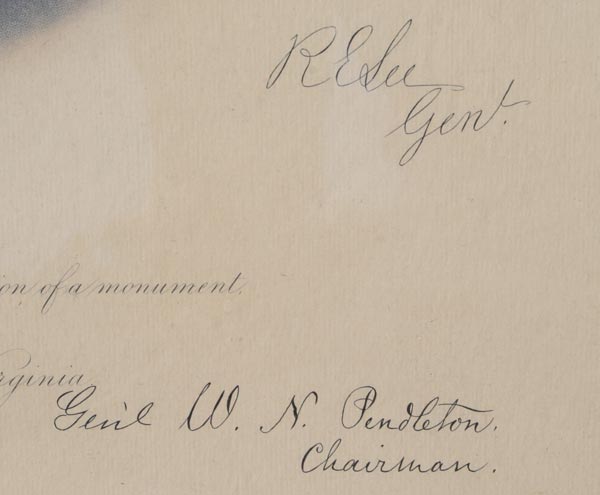 R E Lee
Genl.
ion of a monument.
rginia
Gen'l W. N. Pendleton.
Chairman.